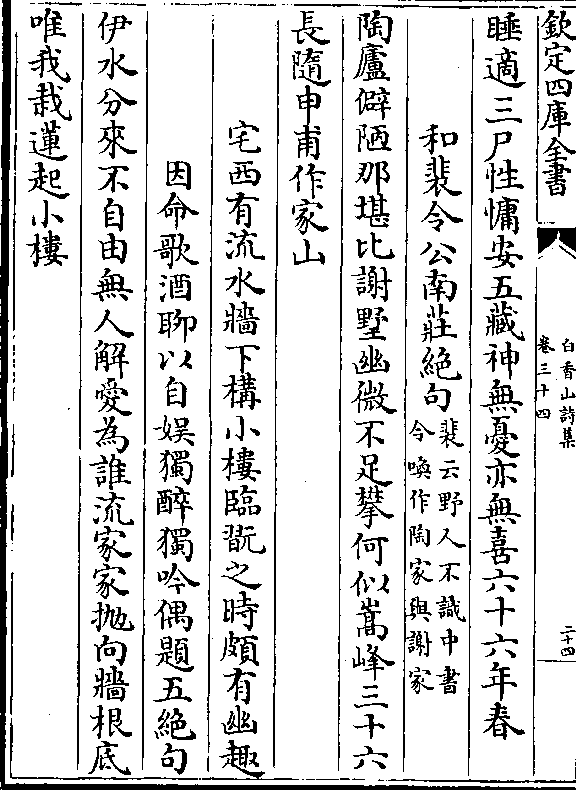 欽定四庫全書
白香山詩集
卷三十四
二十四
睡適三尸性慵安五藏神無憂亦無喜六十六年春
和裴令公南莊絕句
裴云野人不識中書
令喚作陶家與謝家
陶廬僻陋那堪比謝墅幽微不足攀何似嵩峰三十六
長隨申甫作家山
宅西有流水牆下構小樓臨翫之時頗有幽趣
因命歌酒聊以自娛獨醉獨吟偶題五絕句
伊水分來不自由無人解愛為誰流家家拋向牆根底
唯我栽蓮起小樓